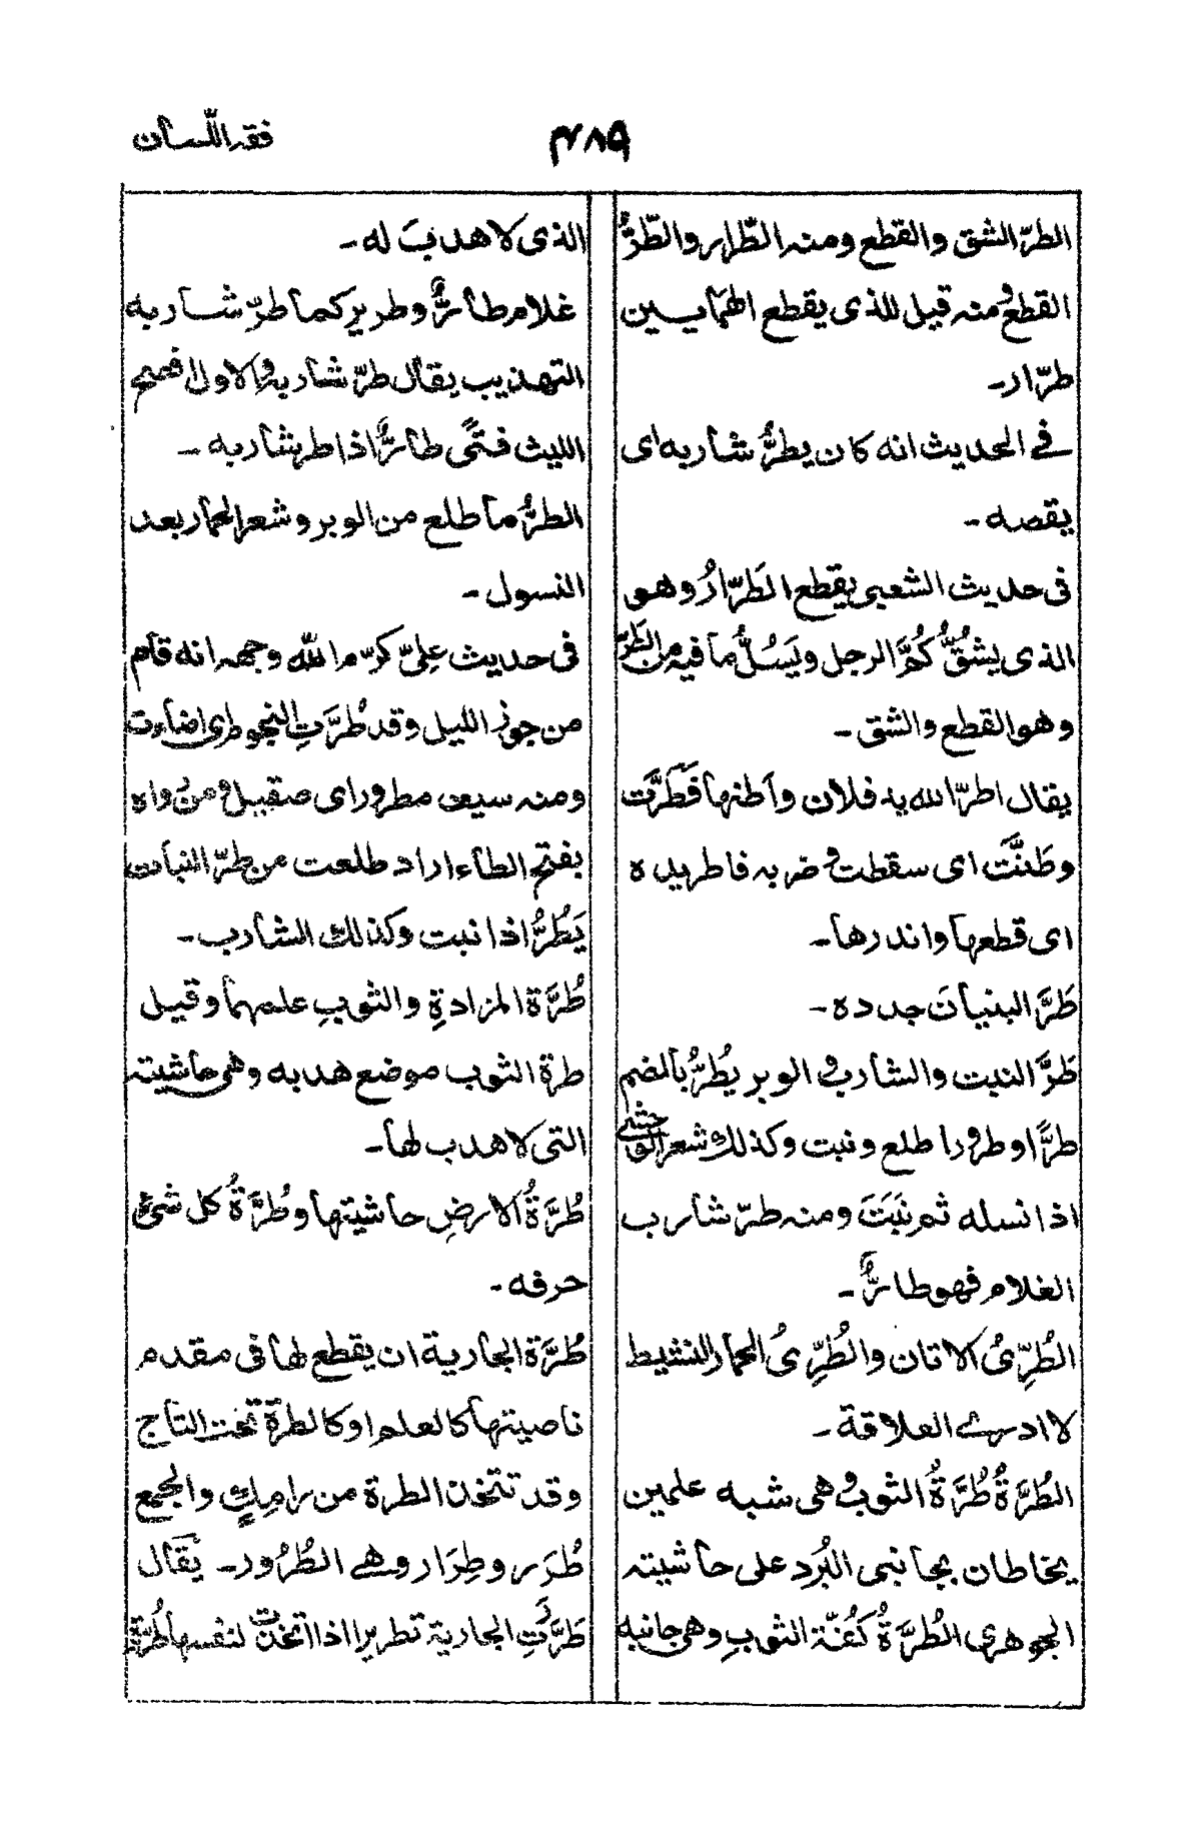 فقه اللّسان
۴۸۹
الطرّ الشق والقطع ومنه الطّرار والطّرُّ
القطع ومنه قيل للذى يقطع الهمايسين
طرّار۔
فے الحديث انه كان يطرُّ شاربه اى
يقصه۔
فى حديث الشعبى يقطع الطَرّارُ وهو
الذى يشُقُّ كُمَّ الرجل ويَسُلُّ ما فيه من الطَرّ
وهو القطع والشق۔
يقال اطرّ الله يد فلان واَطنها فَطَرَّت
وطَنَّت اى سقطت وضربه فاطريده
اى قطعها واندرها۔
طَرَّ البنيانَ جدده۔
طَرَّ النبت والشارب والوبر يطُرُّ بالضم
طرًّا وطرورا طلع ونبت وكذلك شعر الوحشے
اذا نسله ثم نَبَتَ ومنه طرّ شارب
الغلام فهو طارٌّ۔
الطُرِّىُ الاتان والطُرِّىُ الحمار النشيط
لا ادرے العلاقة۔
الطُرَّةُ طُرَّةُ الثوب وهى شبه علمين
يخاطان بجانبى البُرد على حاشيته
الجوهرى الطُرَّةُ كُفّة الثوبِ وهى جانبه
الذى لا هدبَ له۔
غلام طارٌّ وطرير كما طرّ شاربه
التهذيب يقال طرّ شاربه والاول افصح
الليث فتًى طارٌّ اذا طر شاربه۔
الطرُّ ما طلع من الوبر وشعر الحمار بعد
النسول۔
فى حديث علىّ كرّم الله وجهه انه قام
من جوز الليل وقد طُرَّتِ النجوم اى اضاءت
ومنه سيف مطرور اى صقيل ومن رواه
بفتح الطاء اراد طلعت من طرّ النبات
يَطُرُّ اذا نبت وكذلك الشارب۔
طُرَّة المزادةِ والثوبِ علمهما وقيل
طرة الثوب موضع هدبه وهى حاشيته
التى لا هدب لها۔
طُرَّةُ الارضِ حاشيتها وطُرَّةُ كل شئ
حرفه۔
طُرَّة الجارية ان يقطع لها فى مقدم
ناصيتها كالعلم او كالطرة تحت التاج
وقد تتخذ الطرة من رامِكٍ والجمع
طُرَر وطِرَار وهے الطُرُور۔ يَقال
طَرَّرَتِ الجارية تطريرا اذا اتخذت لنفسها طُرَّة